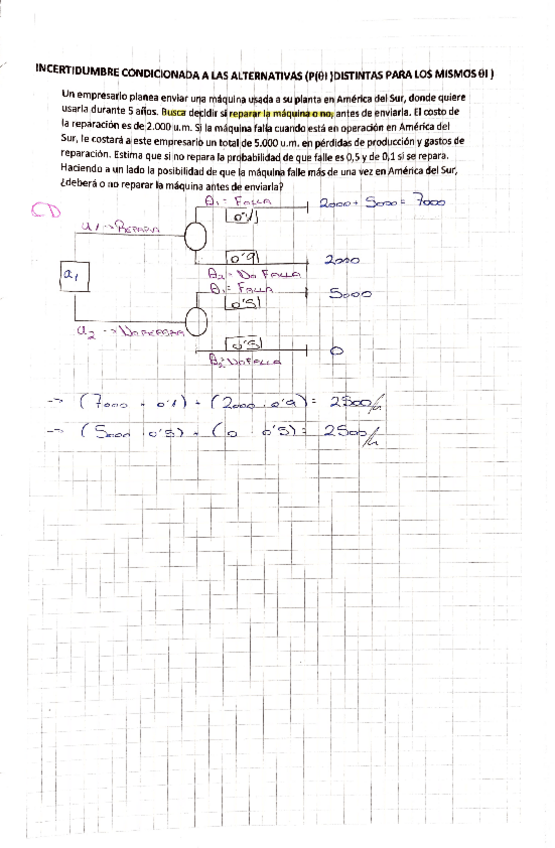 INCERTIDUMBRE CONDICIONADA A LAS ALTERNATIVAS (P(θI )DISTINTAS PARA LOS MISMOS θI )
Un empresario planea enviar una máquina usada a su planta en América del Sur, donde quiere
usarla durante 5 años. Busca decidir si reparar la máquina o no, antes de enviarla. El costo de
la reparación es de 2.000 u.m. Si la máquina falla cuando está en operación en América del
Sur, le costará a este empresario un total de 5.000 u.m. en pérdidas de producción y gastos de
reparación. Estima que si no repara la probabilidad de que falle es 0,5 y de 0,1 si se repara.
Haciendo a un lado la posibilidad de que la máquina falle más de una vez en América del Sur,
¿deberá o no reparar la máquina antes de enviarla?
CD
θ1 = Falla
0'1
2000 + 5000 = 7000
a1 → Reparar
0'9
2000
θ2 = No Falla
a1
θ1 = Falla
0'5
5000
a2 → No reparar
0'5
0
θ2 No Falla
→ (7000 · 0'1) + (2000 · 0'9) = 2500
→ (5000 · 0'5) + (0 · 0'5) = 2500